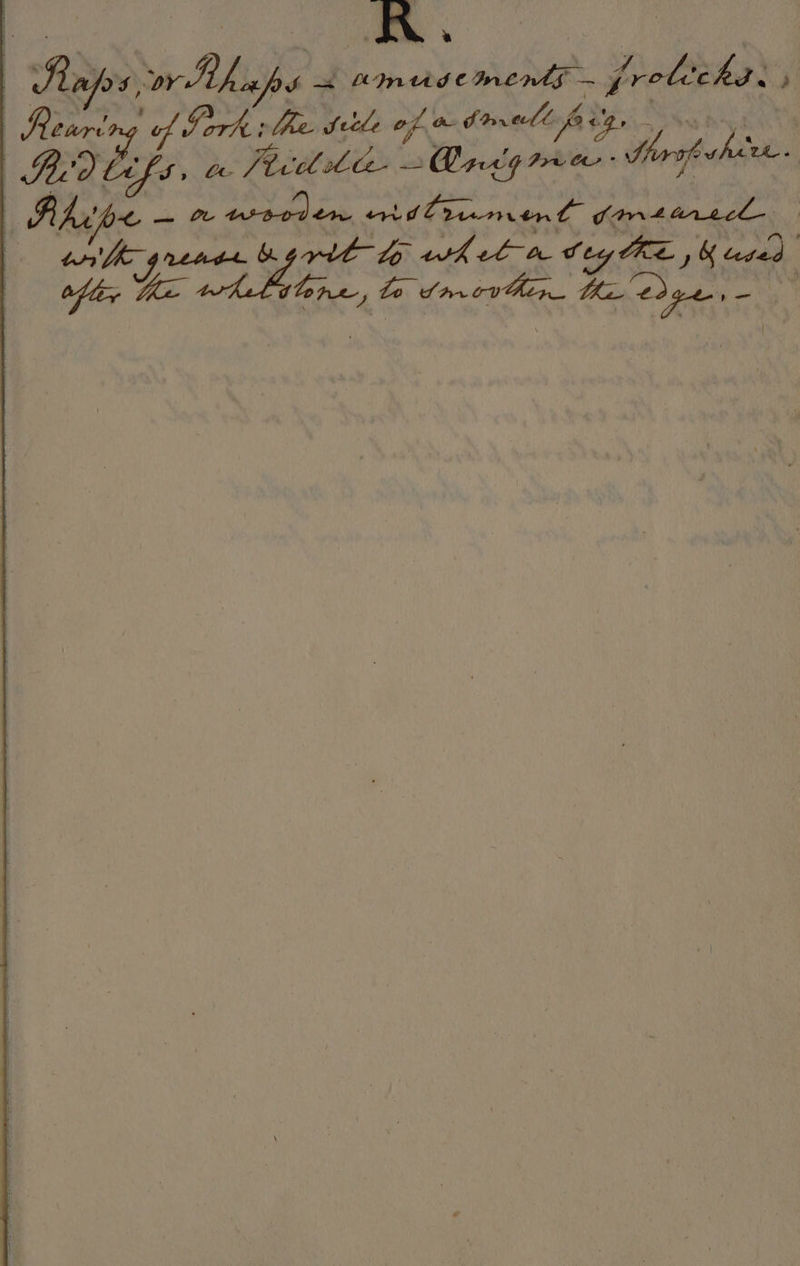 R.
Raps, or Rhaps = amusements – frolicks.
Rearing of Pork; the side of a small pig, –
Ridlifs, a Riddle – Ænigma - Shropshire.
Rhipe – a wooden instrument smeared
with grease & grit to whet a scythe, & used
after the whetstone, to smoothen the edge, –